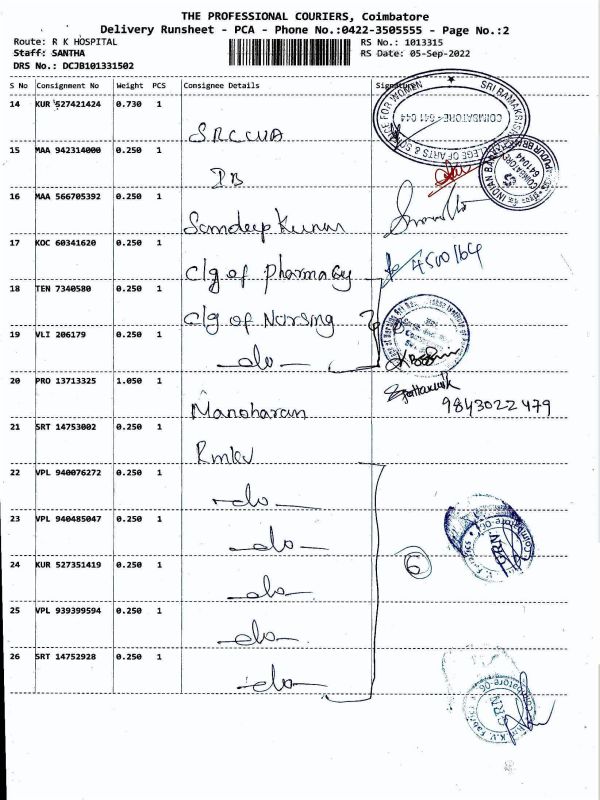 THE PROFESSIONAL COURIERS, Coimbatore
Delivery Runsheet - PCA - Phone No.:0422-3505555 - Page No.:2
Route: R K HOSPITAL
Staff: SANTHA
DRS No.: DCJB101331502
RS No.: 1013315
RS Date: 05-Sep-2022
S No Consignment No Weight PCS Consignee Details Signature
14 KUR 527421424 0.730 1
SRCCUA
15 MAA 942314000 0.250 1
IB
16 MAA 566705392 0.250 1
Sandeep Kumar
17 KOC 60341620 0.250 1
Clg of Pharmacy 4500164
18 TEN 7340580 0.250 1
Clg of Nursing
19 VLI 206179 0.250 1
-do-
20 PRO 13713325 1.050 1
Manoharan 9843022479
21 SRT 14753002 0.250 1
Rmkv
22 VPL 940076272 0.250 1
-do-
23 VPL 940485047 0.250 1
-do-
24 KUR 527351419 0.250 1
-do- 6
25 VPL 939399594 0.250 1
-do-
26 SRT 14752928 0.250 1
-do-
SRI RAMAKRISHNA COLLEGE OF ARTS & SCIENCE FOR WOMEN
COIMBATORE - 641 044
INDIAN BANK
COIMBATORE
641044
Coimbatore-06
GRN
Coimbatore-06
GRN